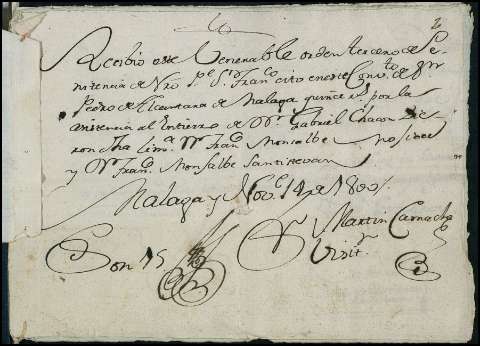 2
Recibio este Venerable orden tercero de Pe-
nitencia de Nro. Pe. Sn. Franco. cito en este Convto. de Sn.
Pedro de Alcantara de Malaga quince rs. por la
asistencia al Entierro de Dn. Gabriel Chacon Die
ron la lima. Dn. Frand. Monsalbe
y Dn. Frand. Monsalbe Santistevan
Malaga y Nove. 14 de 1800
Son 15
Martin Camacho
Visit.